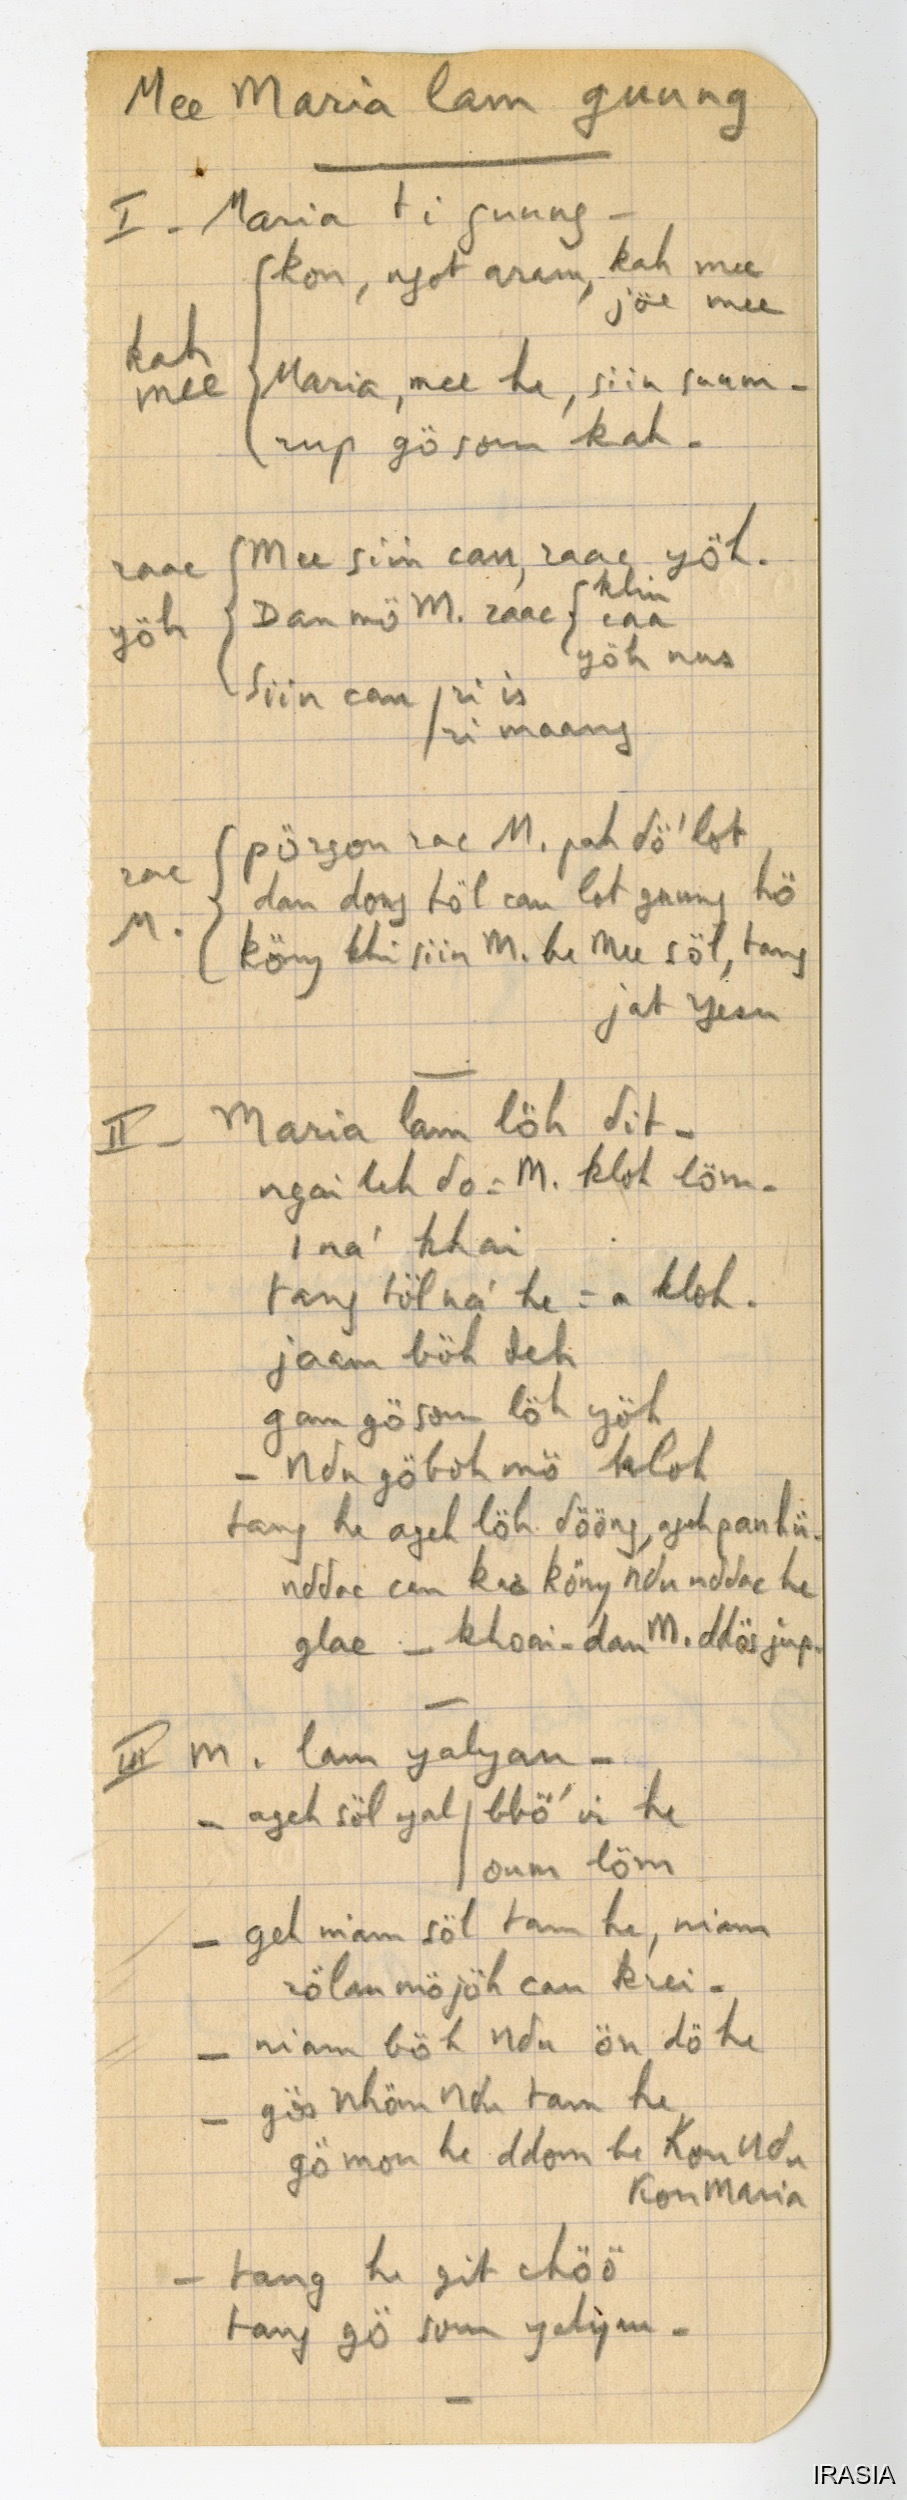 Mee Maria lam guung
I - Maria ti guung -
kon, ngot aram, kah mee
jöe mee
kah
mee
Maria, mee he, siin suum -
rup gösom kah.
raac
yöh
Mee siin cau, raac yöh.
Dan mö M. raac klin
caa
yöh nus
siin cau ri is
ri maang
rac
M.
pörgon rac M. pah dö' lot
dan dong töl cau lot guung hö
köny khi siin M. he Mee söl, tang
jat Yesu
II - Maria lam löh dit -
ngai leh do = M. kloh löm.
1 na' khai
tang töl na' he = a kloh.
jaam böh deh
gam gösom löh yöh
- Ndu göboh mö kloh
tang he ageh löh dööng, ageh pan hü.
nddac can kac köny Ndu nddac he
glac - khoai - dan M. ddös jup.
III M. lam yalyau -
- ageh söl yal bbö' vi he
oum löm
- geh niam söl tam he, niam
rölau möjöh cau krei -
- niam böh Ndu ön dö he
- gös Nhöm Ndu tam he
gö mon he ddom be Kon Ndu
Kon Maria
- tang he git chöö
tang gö som yalyau -
IRASIA